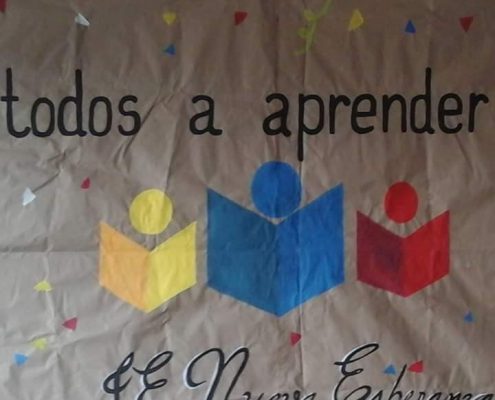 todos a aprender
I.E Nueva Esperanza